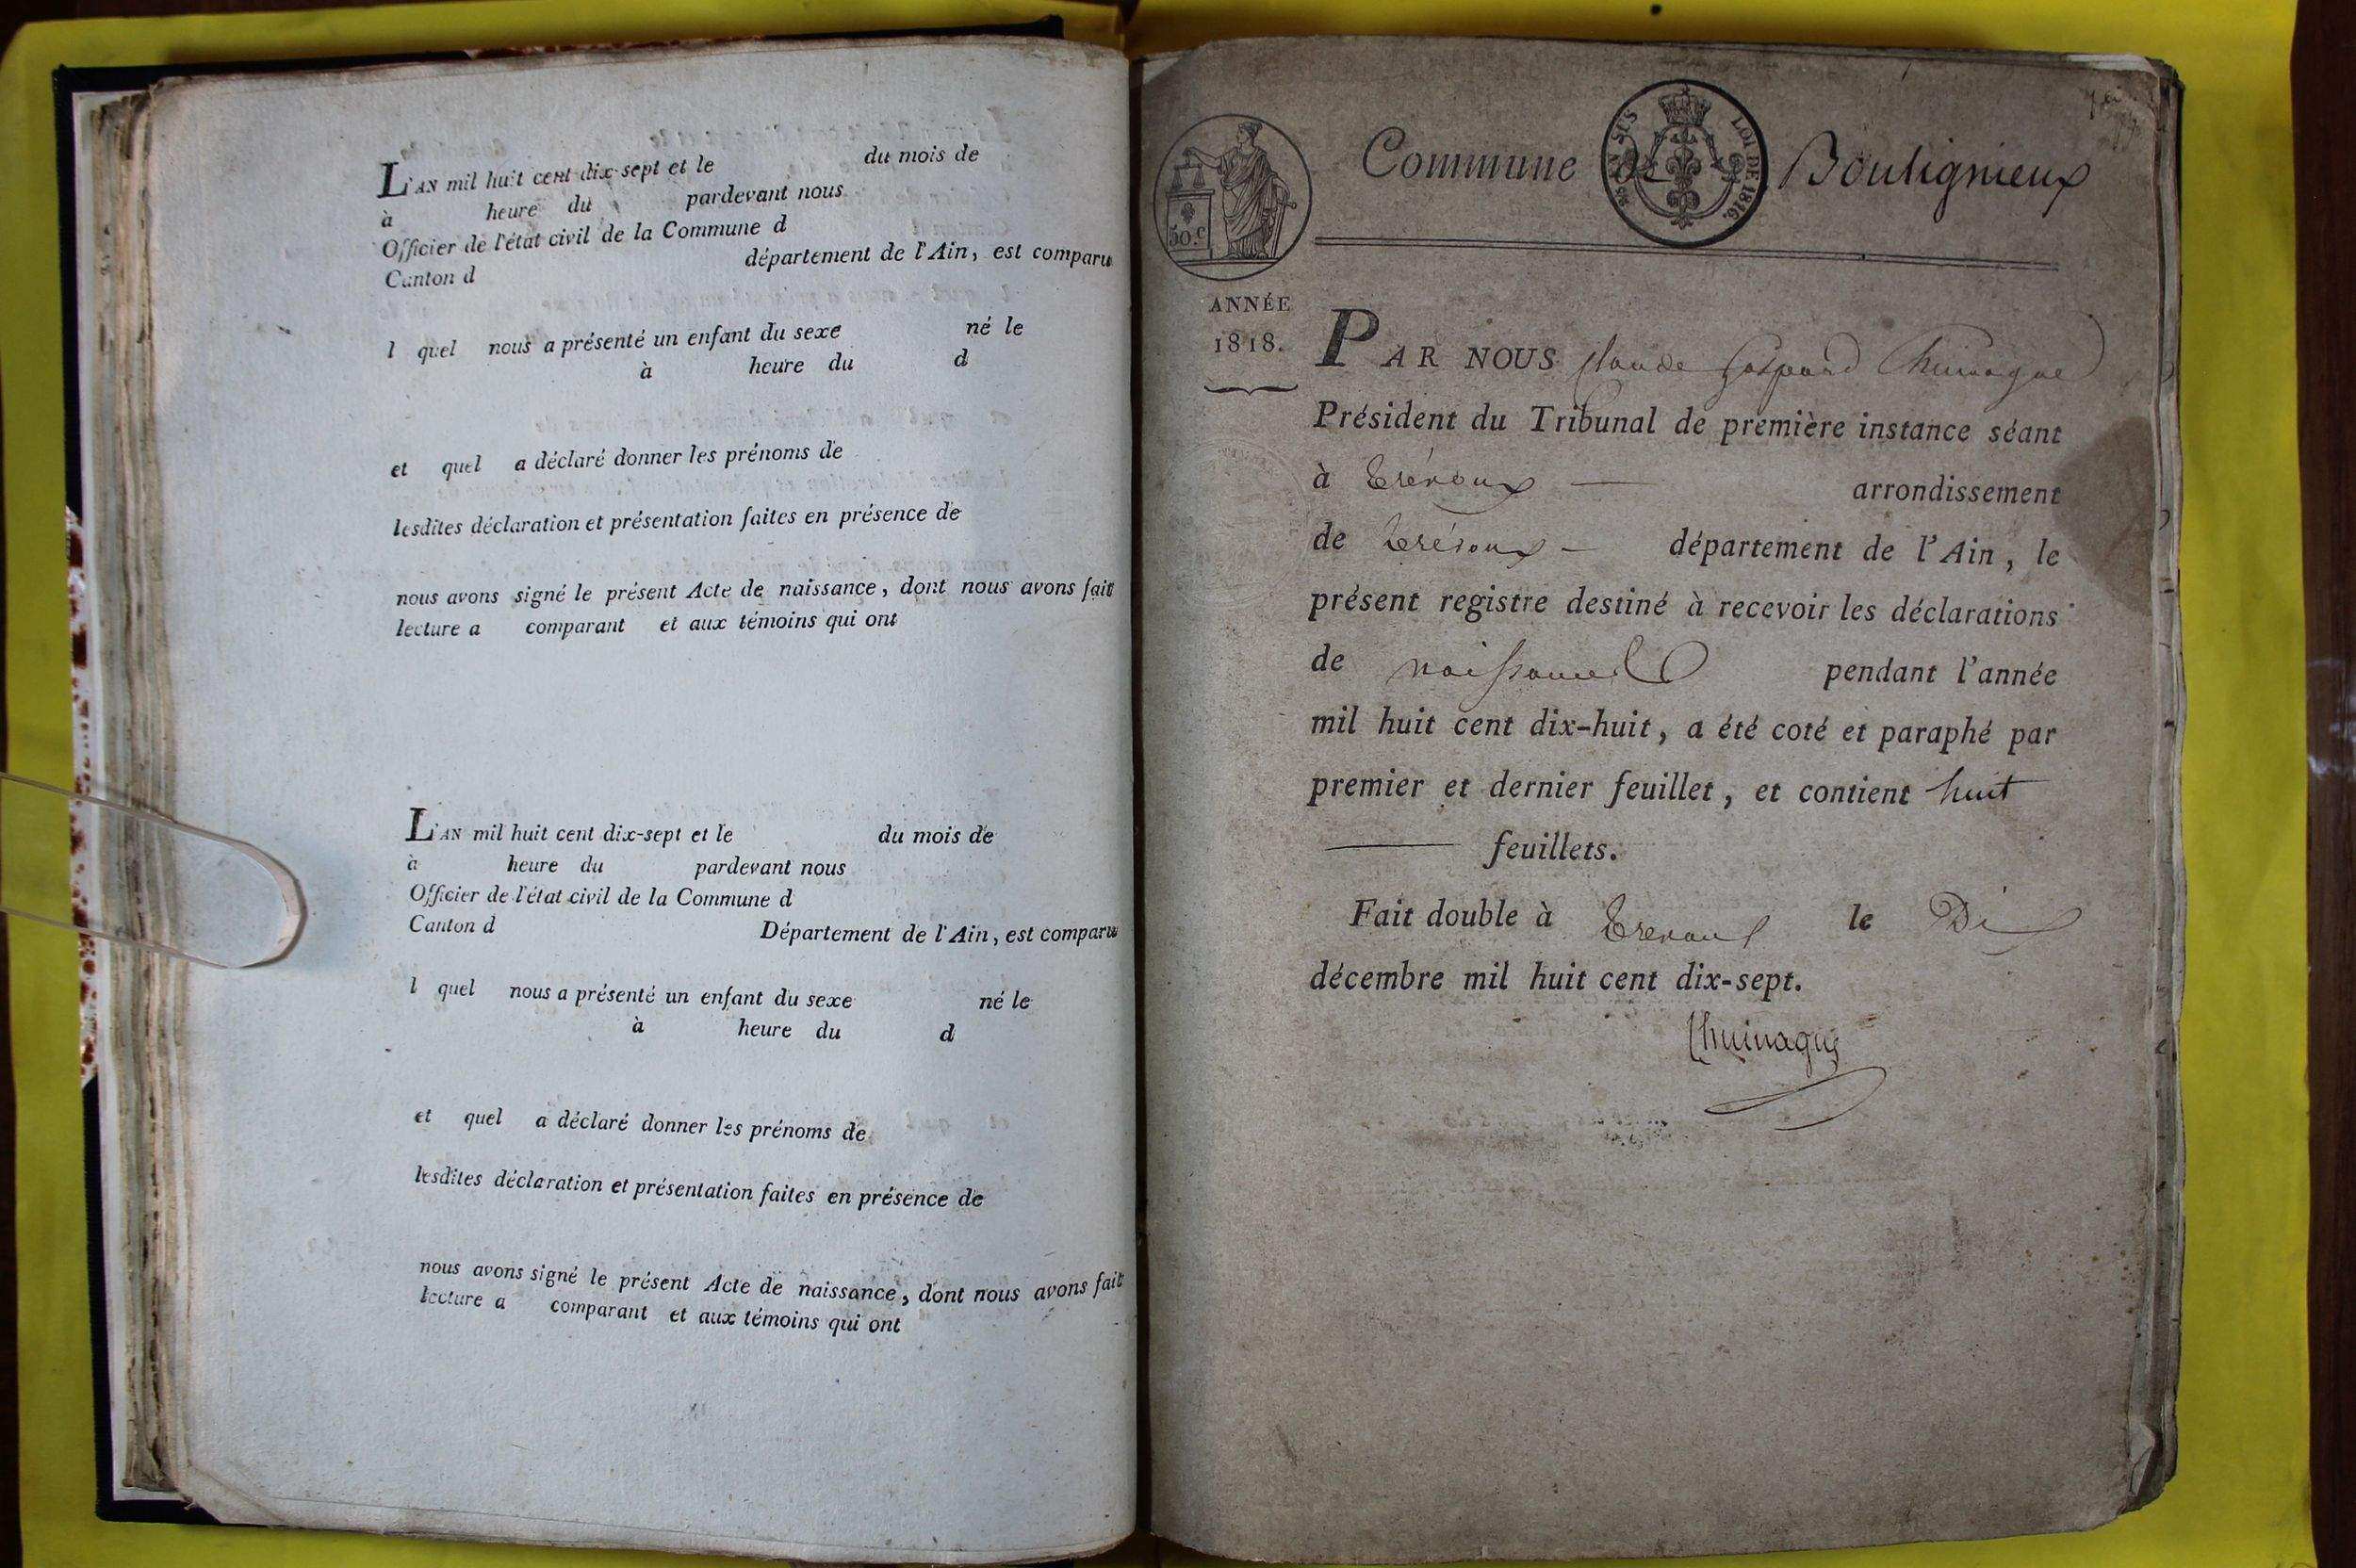 L'AN mil huit cent dix-sept et le du mois de
à heure du pardevant nous
Officier de l'état civil de la Commune d
Canton d département de l'Ain, est comparu
l quel nous a présenté un enfant du sexe né le
à heure du d
et quel a déclaré donner les prénoms de
lesdites déclaration et présentation faites en présence de
nous avons signé le présent Acte de naissance, dont nous avons fait
lecture a comparant et aux témoins qui ont
L'AN mil huit cent dix-sept et le du mois de
à heure du pardevant nous
Officier de l'état civil de la Commune d
Canton d Département de l'Ain, est comparu
l quel nous a présenté un enfant du sexe né le
à heure du d
et quel a déclaré donner les prénoms de
lesdites déclaration et présentation faites en présence de
nous avons signé le présent Acte de naissance, dont nous avons fait
lecture a comparant et aux témoins qui ont
Commune de Boulignieux
SUS LOI DE 1816.
50.c
ANNÉE
1818.
PAR NOUS Claude Gaspard
Président du Tribunal de première instance séant
à Trévoux — arrondissement
de Trévoux — département de l'Ain, le
présent registre destiné à recevoir les déclarations
de naissances pendant l'année
mil huit cent dix-huit, a été coté et paraphé par
premier et dernier feuillet, et contient huit
— feuillets.
Fait double à Trevoux le Dix
décembre mil huit cent dix-sept.